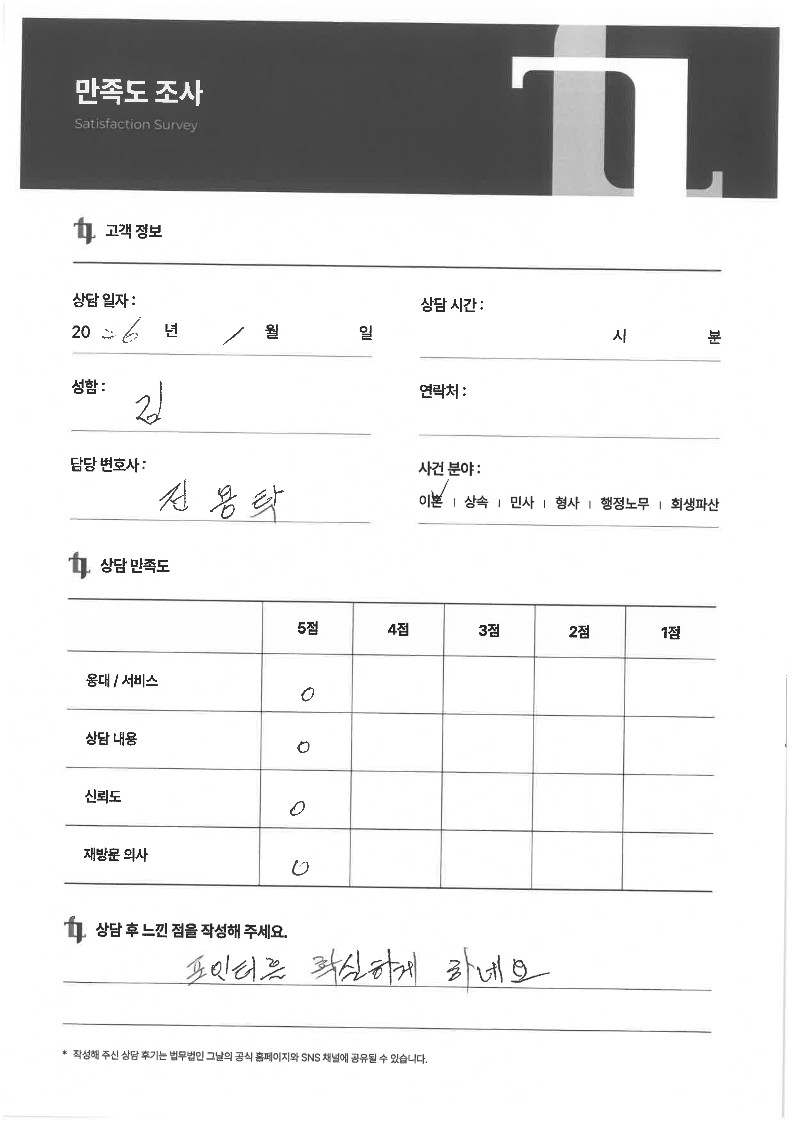 만족도 조사
Satisfaction Survey
고객 정보
상담 일자 :
상담 시간 :
20 26 년 1 월 일
시 분
성함 : 김
연락처 :
담당 변호사 : 전용탁
사건 분야 :
이혼 | 상속 | 민사 | 형사 | 행정노무 | 회생파산
상담 만족도
5점 4점 3점 2점 1점
응대 / 서비스 O
상담 내용 O
신뢰도 O
재방문 의사 O
상담 후 느낀 점을 작성해 주세요.
포인터은 확실하게 하네요
* 작성해 주신 상담 후기는 법무법인 그날의 공식 홈페이지와 SNS 채널에 공유될 수 있습니다.